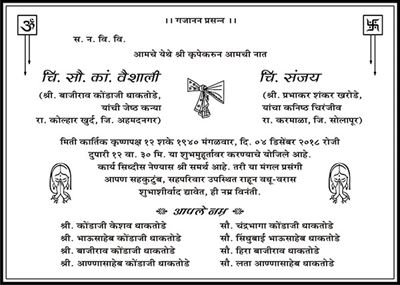 ।। गजानन प्रसन्न ।।
स. न. वि. वि.
आमचे येथे श्री कृपेकरुन आमची नात
चिं. सौ. कां. वैशाली
(श्री. बाजीराव कोंडाजी थाकतोडे,
यांची जेष्ठ कन्या
रा. कोल्हार खुर्द, जि. अहमदनगर)
चिं. संजय
(श्री. प्रभाकर शंकर खरोडे,
यांचा कनिष्ठ चिरंजीव
रा. करमाळा, जि. सोलापूर)
मिती कार्तिक कृष्णपक्ष १२ शके १९४० मंगळवार, दि. ०४ डिसेंबर २०१८ रोजी
दुपारी १२ वा. ३० मि. या शुभमुहूर्तावर करण्याचे योजिले आहे.
कार्य सिध्दीस नेण्यास श्री समर्थ आहे. तरी या मंगल प्रसंगी
आपण सहकुटुंब, सहपरिवार उपस्थित राहून वधू-वरास
शुभाशीर्वाद द्यावेत, ही नम्र विनंती.
आपले नम्र
श्री. कोंडाजी केशव थाकतोडे
सौ. चंद्रभागा कोंडाजी थाकतोडे
श्री. भाऊसाहेब कोंडाजी थाकतोडे
सौ. सिंधुबाई भाऊसाहेब थाकतोडे
श्री. बाजीराव कोंडाजी थाकतोडे
सौ. हिरा बाजीराव थाकतोडे
श्री. आण्णासाहेब कोंडाजी थाकतोडे
सौ. लता आण्णासाहेब थाकतोडे